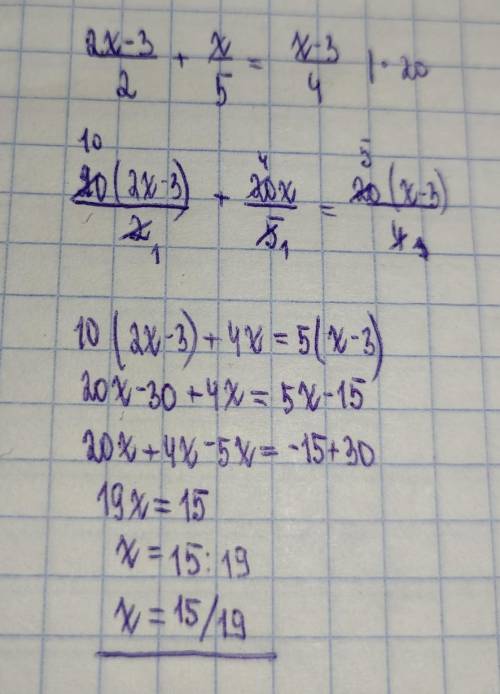 (2x-3)/2 + x/5 = (x-3)/4 | · 20
10 4 5
20(2x-3)/2 1 + 20x/5 1 = 20(x-3)/4 1
10(2x-3)+4x=5(x-3)
20x-30+4x=5x-15
20x+4x-5x=-15+30
19x=15
x=15:19
x=15/19